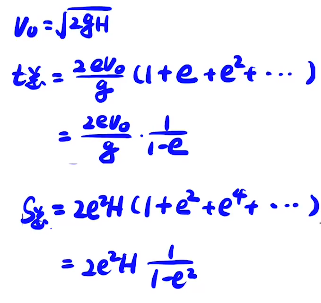 V₀=√2gH
t总 = 2eV₀/g (1+e+e²+⋯)
= 2eV₀/g · 1/1-e
S总 = 2e²H(1+e²+e⁴+⋯)
= 2e²H 1/1-e²